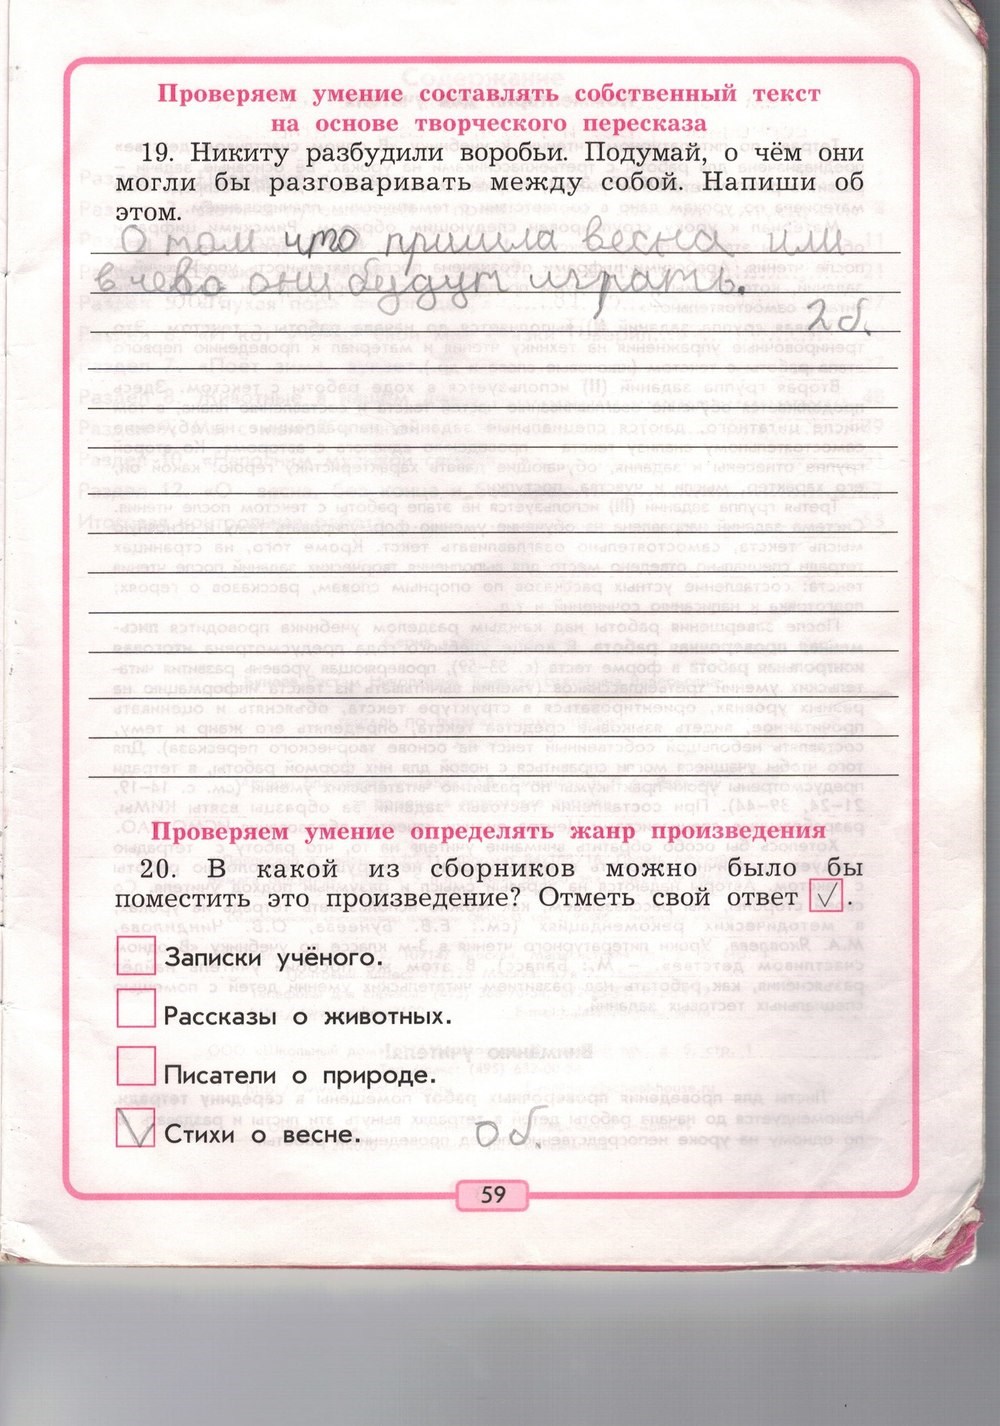 Проверяем умение составлять собственный текст
на основе творческого пересказа
19. Никиту разбудили воробьи. Подумай, о чём они
могли бы разговаривать между собой. Напиши об
этом.
О том что пришла весна или
в чево они будут играть.
2 б.
Проверяем умение определять жанр произведения
20. В какой из сборников можно было бы
поместить это произведение? Отметь свой ответ ✓.
Записки учёного.
Рассказы о животных.
Писатели о природе.
Стихи о весне.
0 б.
59